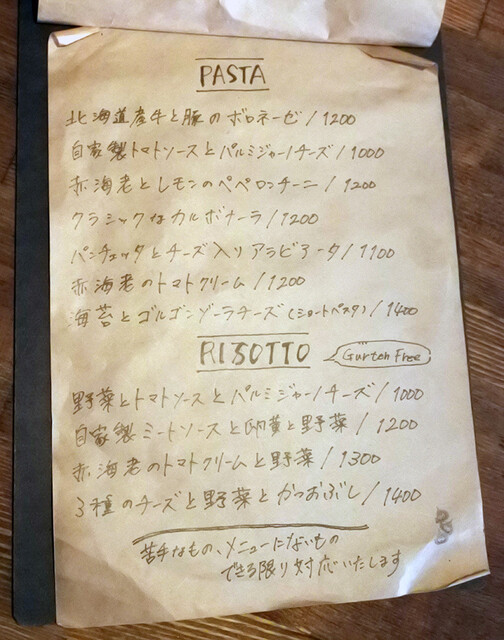 PASTA
北海道産牛と豚のボロネーゼ/1200
自家製トマトソースとパルミジャーノチーズ/1000
赤海老とレモンのペペロンチーニ/1200
クラシックなカルボナーラ/1200
パンチェッタとチーズ入りアラビアータ/1100
赤海老のトマトクリーム/1200
海苔とゴルゴンゾーラチーズ(ショートパスタ)/1400
RISOTTO
Gurten Free
野菜とトマトソースとパルミジャーノチーズ/1000
自家製ミートソースと卵黄と野菜/1200
赤海老のトマトクリームと野菜/1300
3種のチーズと野菜とかつおぶし/1400
苦手なもの、メニューにないもの
できる限り対応いたします